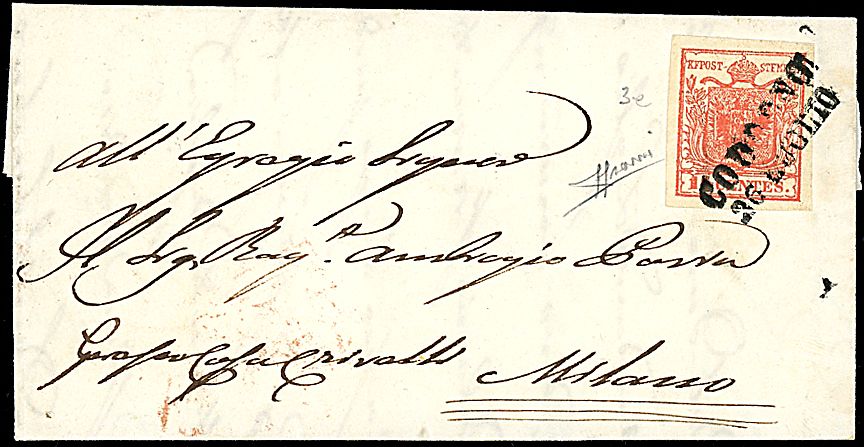 KKPOST-STEMPEL
15 CENTES.
CODOGNO
26 LUGLIO
3e
all'Egregio Signore
Il Sig. Rag.º Ambrogio
Casa Crivelli
Milano